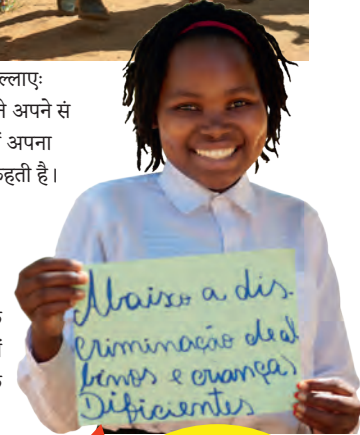 ल्लाएः
ने अपने सं
अपना
कहती है।
Abaixo a dis.
criminação de al
binos e crianças
Dificientes